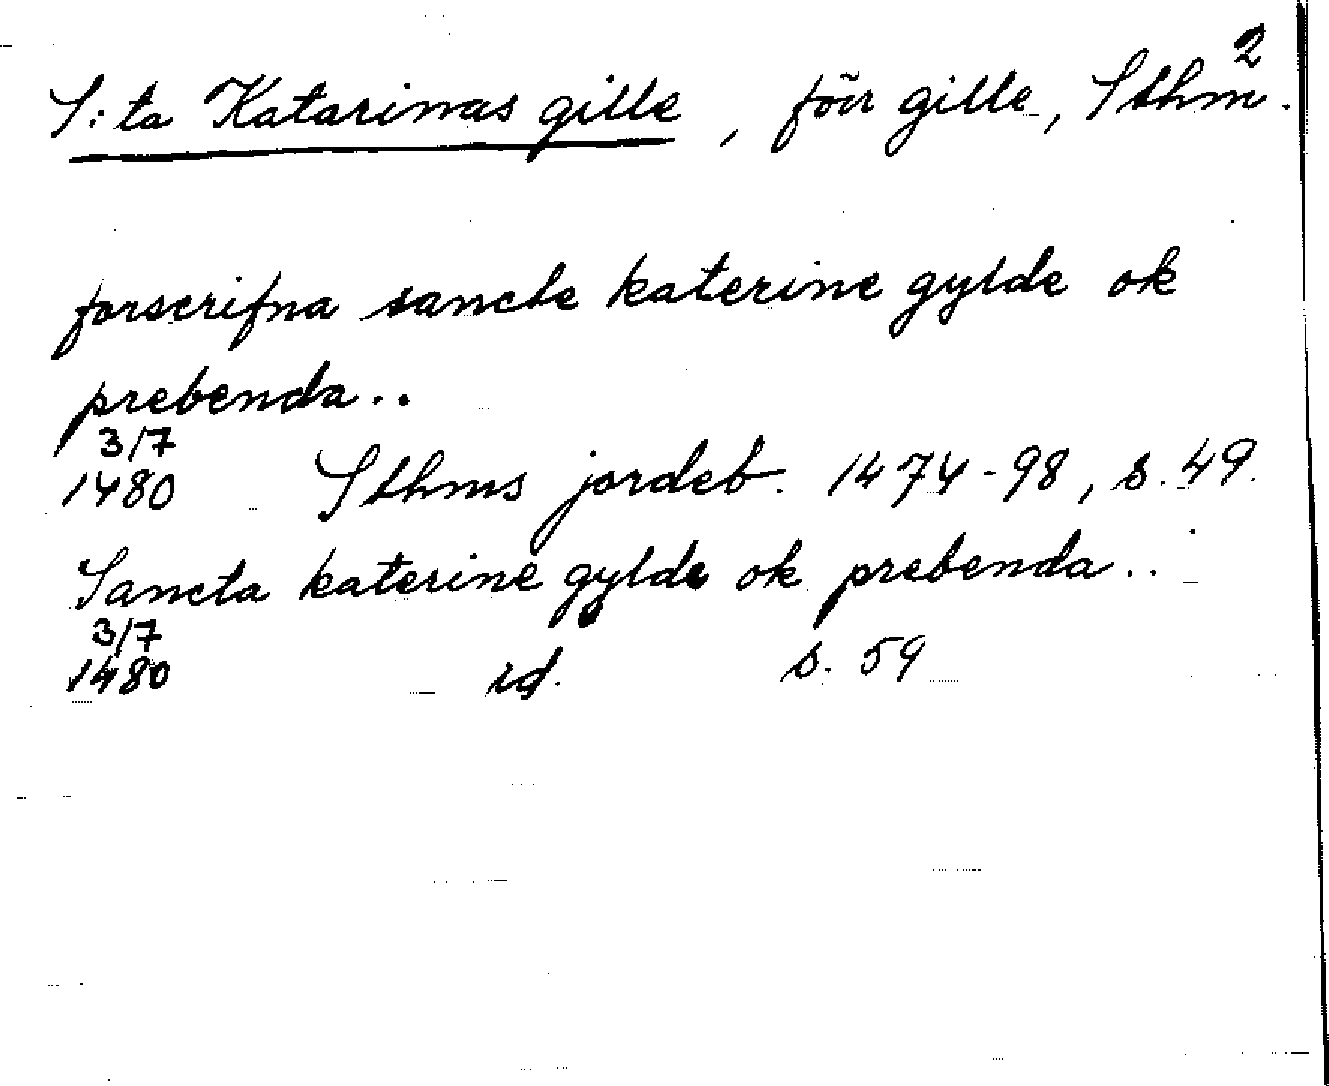 2
S:ta Katarinas gille, förr gille, Sthm.
forscrifna sancte katerine gylde ok
prebenda..
3/7
1480 Sthms jordeb. 1474-98, s. 49.
Sancta katerine gylde ok prebenda..
3/7
1480 id. s. 59